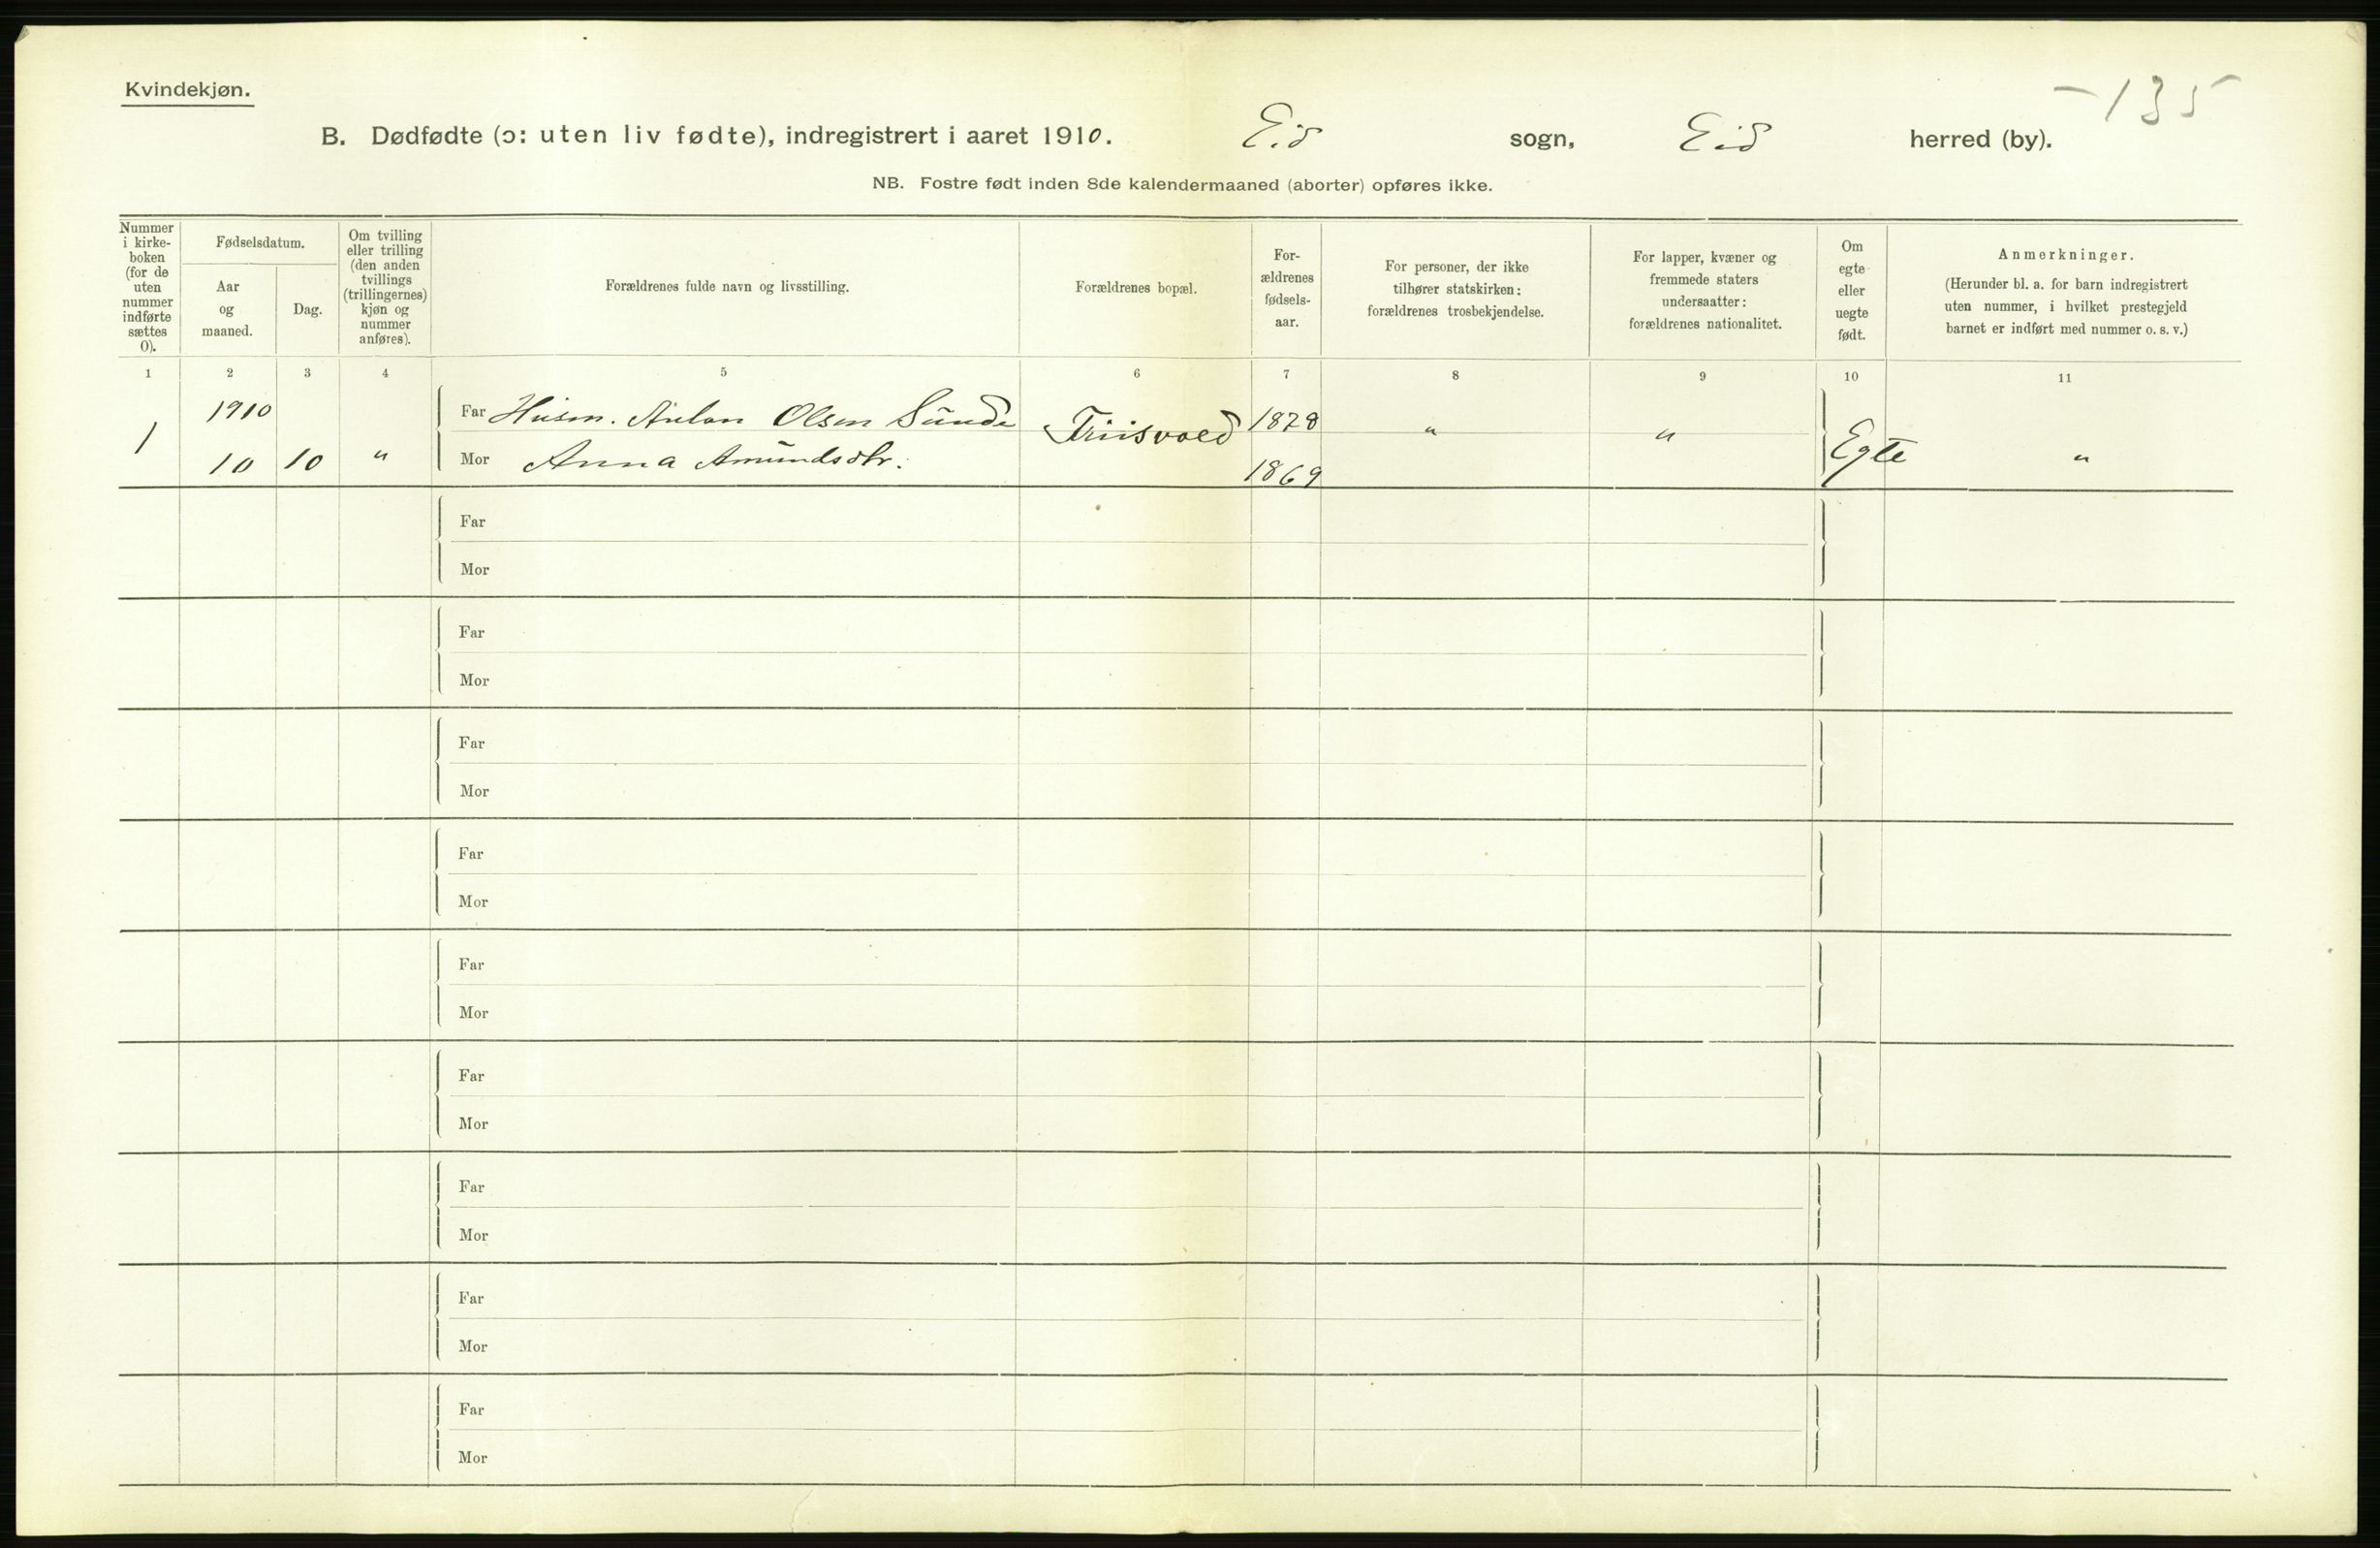 Kvindekjøn.
-135
B. Dødfødte (ɔ: uten liv fødte), indregistrert i aaret 1910. Eid sogn, Eid herred (by).
NB. Fostre født inden 8de kalendermaaned (aborter) opføres ikke.
Nummer
i kirke-
boken
(for de
uten
nummer
indførte
sættes
0).
Fødselsdatum.
Aar
og
maaned.
Dag.
Om tvilling
eller trilling
(den anden
tvillings
(trillingernes)
kjøn og
nummer
anføres).
Forældrenes fulde navn og livsstilling.
Forældrenes bopæl.
For-
ældrenes
fødsels-
aar.
For personer, der ikke
tilhører statskirken:
forældrenes trosbekjendelse.
For lapper, kvæner og
fremmede staters
undersaatter:
forældrenes nationalitet.
Om
egte
eller
uegte
født.
Anmerkninger.
(Herunder bl. a. for barn indregistrert
uten nummer, i hvilket prestegjeld
barnet er indført med nummer o. s. v.)
1 2 3 4 5 6 7 8 9 10 11
1910 Far Husm. Anton Olsen Sunde 1878
1 10 10 " Mor Anna Amundsdtr. 1869 " " Egte "
Far
Mor
Far
Mor
Far
Mor
Far
Mor
Far
Mor
Far
Mor
Far
Mor
Far
Mor
Far
Mor